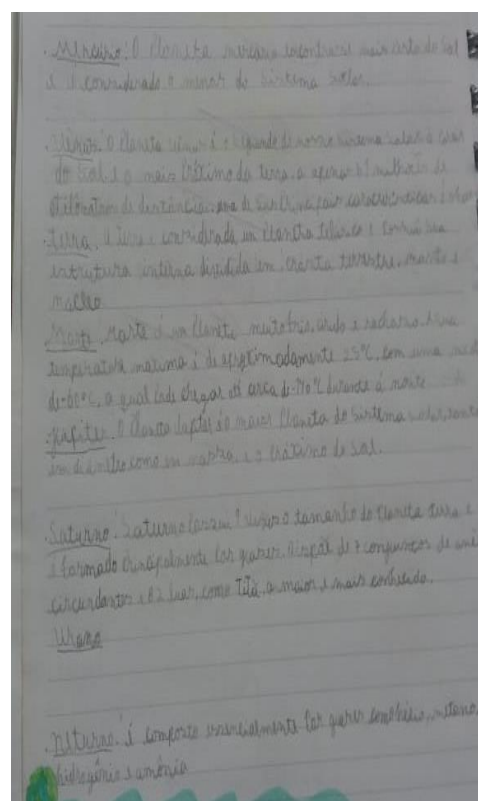 . Mercúrio: O Planeta mercúrio encontra-se mais perto do Sol
e é considerado o menor do Sistema Solar.
. Vênus: O Planeta vênus é o segundo do nosso sistema solar
do Sol e o mais Próximo da terra, a apenas 41 milhões de
de distância
. terra. A terra é considerada um Planeta telúrico e Possui sua
estrutura interna dividida em, crosta terrestre, manto e
núcleo
. Marte. Marte é um Planeta muito frio, árido e rochoso. A sua
temperatura máxima é de aproximadamente 25°C, com uma
de -60°C, a qual Pode chegar até cerca de -140°C durante a noite
. Júpiter. O Planeta maior Planeta do Sistema solar, tanto
em diâmetro como em massa, e o Próximo do Sol.
. Saturno: Saturno Possui 9 vezes o tamanho do Planeta terra e
é formado Principalmente Por gases. de 7 conjuntos de
circundantes e 82 luas, como Titã, a maior e mais conhecida.
Urano
. Netuno: é composto essencialmente Por gases como hélio, metano,
hidrogênio e amônia